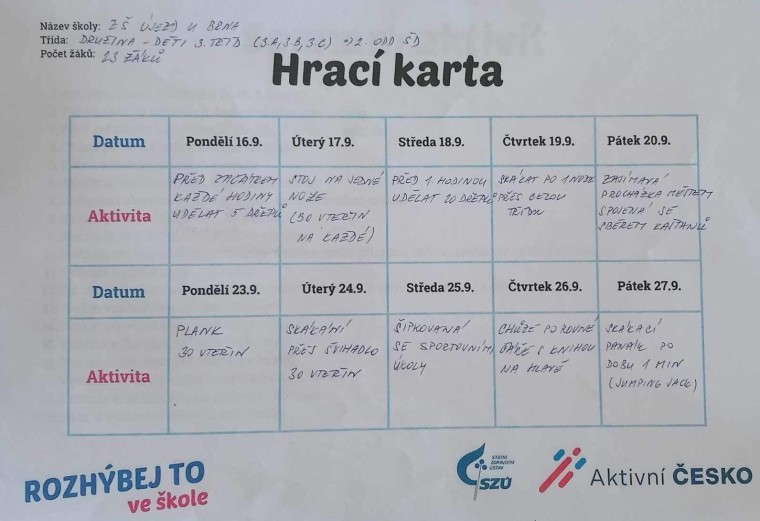 Název školy: ZŠ ÚJEZD U BRNA
Třída: DRUŽINA - DĚTI 3. TŘÍD (3.A, 3.B, 3.C) => 2. ODD ŠD
Počet žáků: 23 ŽÁKŮ
Hrací karta
Datum
Pondělí 16.9.
Úterý 17.9.
Středa 18.9.
Čtvrtek 19.9.
Pátek 20.9.
Aktivita
PŘED ZAČÁTKEM
KAŽDÉ HODINY
UDĚLAT 5 DŘEPŮ
STOJ NA JEDNÉ
NOZE
(30 VTEŘIN
NA KAŽDÉ)
PŘED 1. HODINOU
UDĚLAT 20 DŘEPŮ
SKÁKAT PO 1 NOZE
PŘES CELOU
TŘÍDU
ZAJÍMAVÁ
PROCHÁZKA MĚSTEM
SPOJENÁ SE
SBĚREM KAŠTANŮ
Datum
Pondělí 23.9.
Úterý 24.9.
Středa 25.9.
Čtvrtek 26.9.
Pátek 27.9.
Aktivita
PLANK
30 VTEŘIN
SKÁKÁNÍ
PŘES ŠVIHADLO
30 VTEŘIN
ŠIPKOVANÁ
SE SPORTOVNÍMI
ÚKOLY
CHŮZE PO ROVNÉ
S KNIHOU
NA HLAVĚ
SKÁKACÍ
PANÁK PO
DOBU 1 MIN
(JUMPING JACK)
ROZHÝBEJ TO
ve škole
STÁTNÍ
ZDRAVOTNÍ
ÚSTAV
SZÚ
Aktivní ČESKO